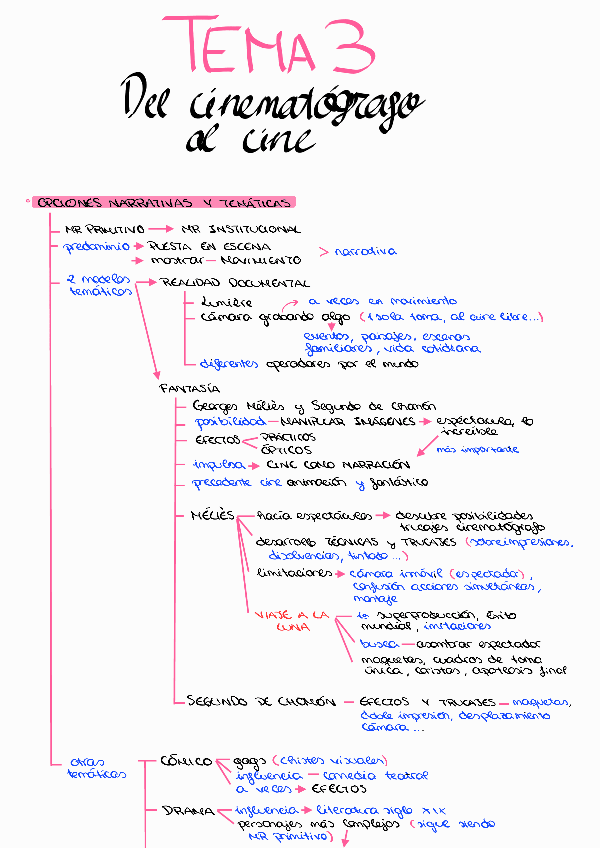 TEMA 3
Del cinematógrafo
al cine
OPCIONES NARRATIVAS Y TEMÁTICAS
MR PRIMITIVO → MR INSTITUCIONAL
predominio → PUESTA EN ESCENA
→ mostrar — MOVIMIENTO
> narrativa
2 modelos temáticos → REALIDAD DOCUMENTAL
Lumière
cámara grabando algo (1 sola toma, al aire libre...)
a veces en movimiento
eventos, paisajes, escenas
familiares, vida cotidiana
diferentes operadores por el mundo
FANTASÍA
Georges Méliès y Segundo de Chomón
posibilidad — MANIPULAR IMÁGENES → espectáculo, lo
increíble
EFECTOS < PRÁCTICOS
ÓPTICOS
más importante
impulsa → CINE COMO NARRACIÓN
precedente cine animación y fantástico
MÉLIÈS — hacía espectáculos → descubre posibilidades
trucajes cinematógrafo
desarrolló TÉCNICAS Y TRUCAJES (sobreimpresiones,
disolvencias, tintado...)
limitaciones → cámara inmóvil (espectador),
confusión acciones simultáneas,
montaje
VIAJE A LA
LUNA
1ª superproducción, éxito
mundial, imitaciones
busca — asombrar espectador
maquetas, cuadros de toma
única, coristas, apoteosis final
SEGUNDO DE CHOMÓN — EFECTOS Y TRUCAJES — maquetas,
doble impresión, desplazamiento
cámara...
otras
temáticas
CÓMICO — gags (chistes visuales)
influencia — comedia teatral
a veces → EFECTOS
DRAMA — influencia → literatura siglo XIX
personajes más complejos (sigue siendo
MR primitivo)